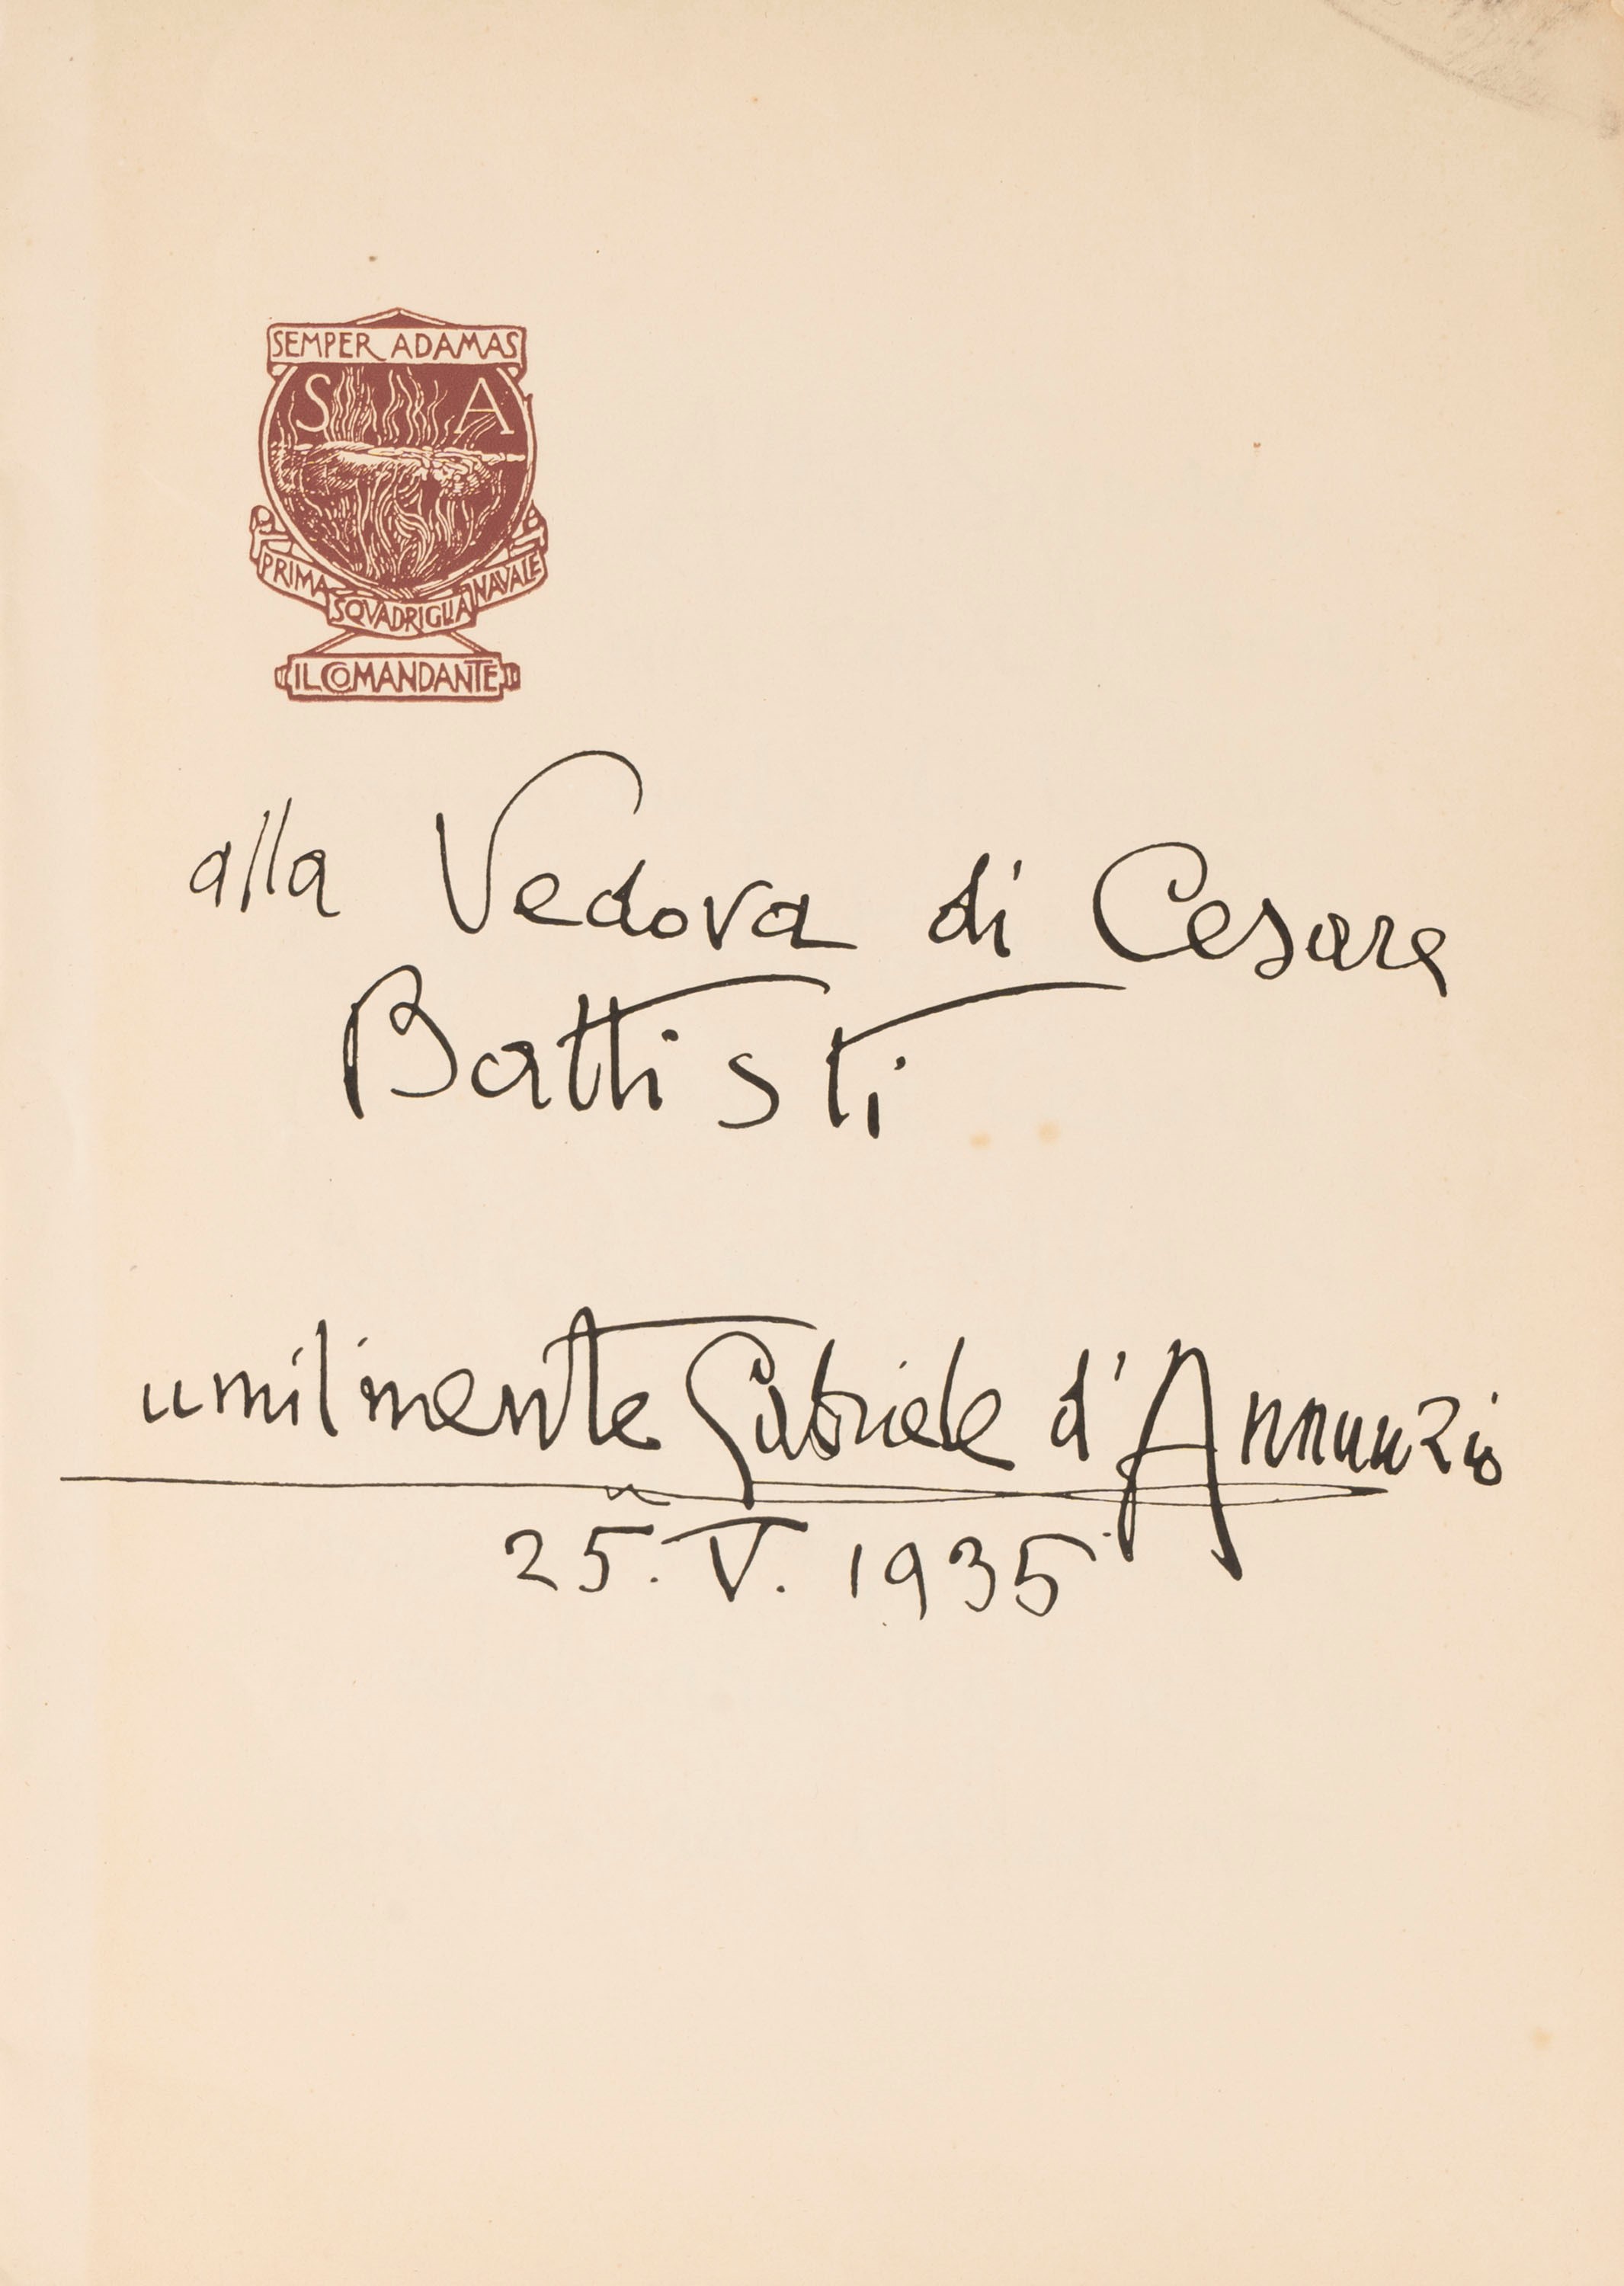 SEMPER ADAMAS
S A
PRIMA SQVADRIGLIA NAVALE
IL COMANDANTE
alla Vedova di Cesare
Battisti
umilmente Gabriele d'Annunzio
25. V. 1935